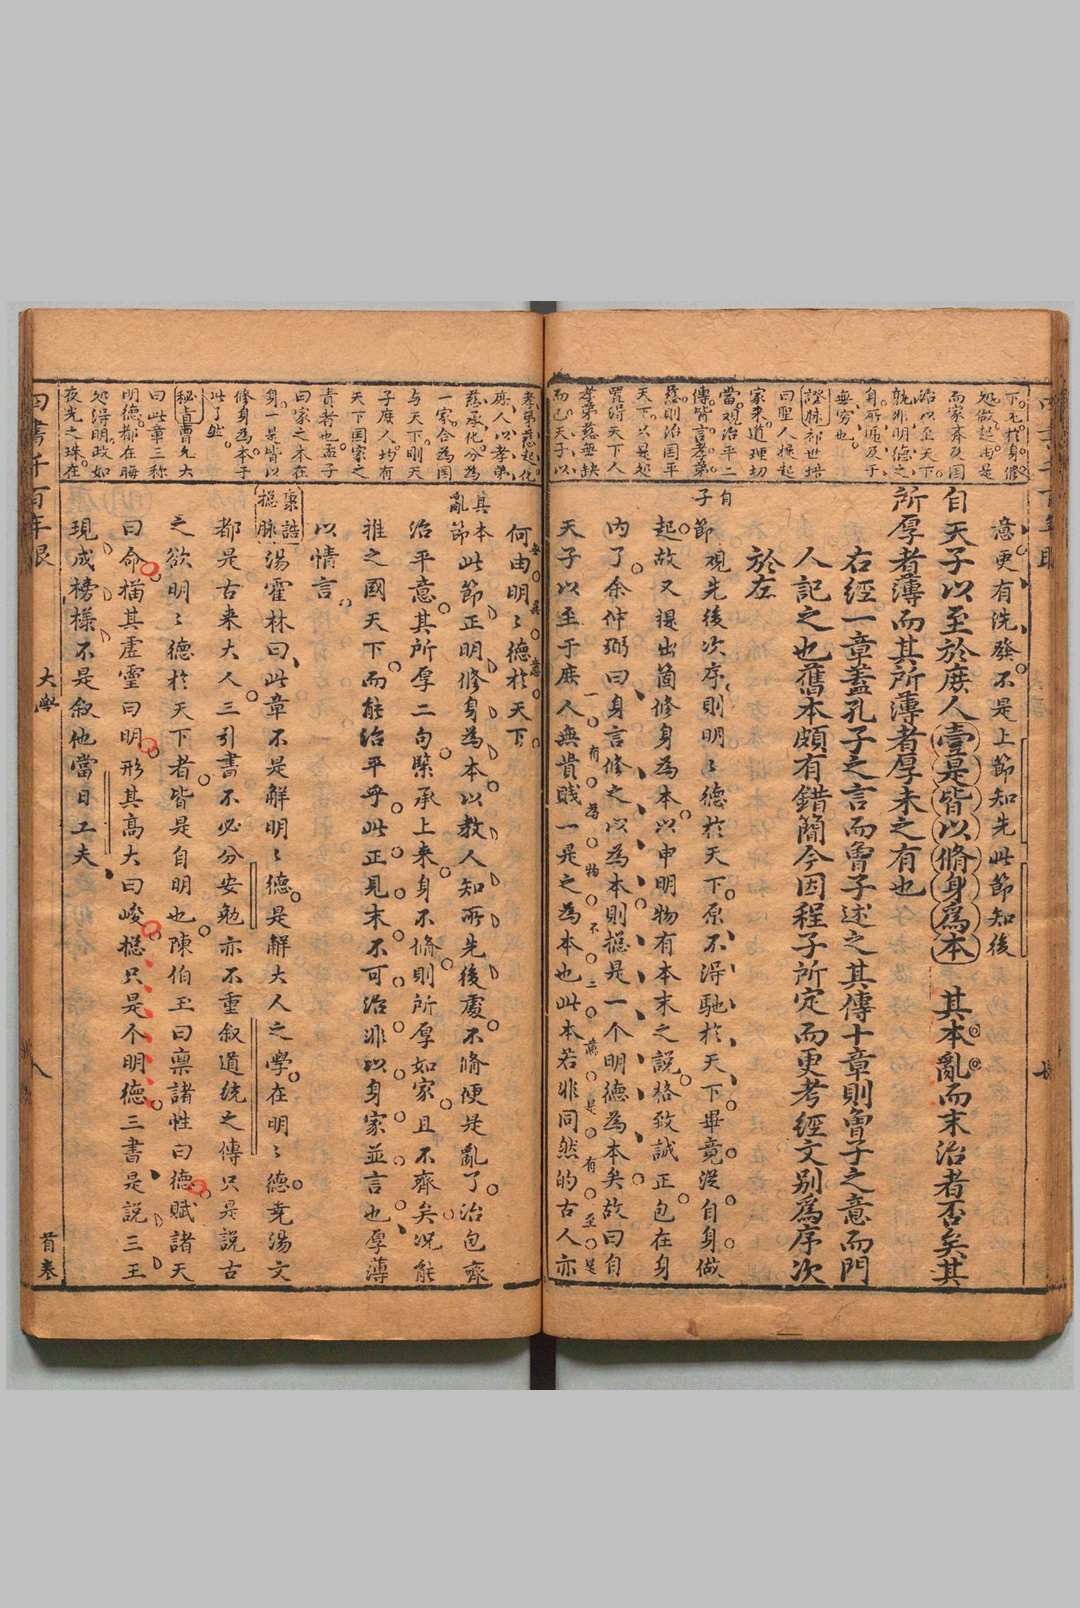 下無於身修
处做起尚是
而家齊及国
治以至天下
就非明德之
身所厎及于
無穷也
證脉祁世培
曰聖人揆起
家来道理切
當观治平二
傳皆言孝弟
慈則治国平
天下只是处
置得天下人
孝弟慈無缺
而已天子以
意更有洗發不是上節知先此節知後
自天子以至於庶人壹是皆以脩身爲本其本亂而末治者否矣其
所厚者薄而其所薄者厚未之有也
右經一章蓋孔子之言而曾子述之其傳十章則曾子之意而門
人記之也舊本頗有錯簡今因程子所定而更考經文别爲序次
於左
自
子節观先後次序則明〻德於天下原不得馳於天下畢竟从自身做
起故又提出箇修身為本以申明物有本末之説格致誠正包在身
内了余仲弼曰身言修之以為本則揔是一个明德為本矣故曰自
一有為物不二
天子以至于庶人無貴賤一是之為本也此本若非同然的古人亦
孝弟慈起化
庶人以孝弟
慈承化分為
一家合為国
与天下則天
子庶人均有
天下国家之
責者也孟子
曰家之本在
身一是皆以
修身為本子
此了然
秘旨曹允大
曰此章三称
明德都在晦
处得明政如
夜光之珠在
何由明〻德於天下
其本
亂節此節正明修身為本以教人知所先後處不脩便是亂了治包齊
治平意其所厚二句槩承上来身不脩則所厚如家且不齊矣况能
推之國天下而能治平乎此正見末不可治非以身家並言也厚薄
以情言
彙誥
揔脉湯霍林曰此章不是解明〻德是解大人之學在明〻德尭湯文
都是古来大人三引書不必分安勉亦不重叙道統之傳只是説古
之欲明〻德於天下者皆是自明也陳伯玉曰禀諸性曰德賦諸天
曰命描其虛靈曰明形其高大曰峻揔只是个明德三書是説三王
現成榜様不是叙他當日工夫
四書千百年眼
大學
八
首巻